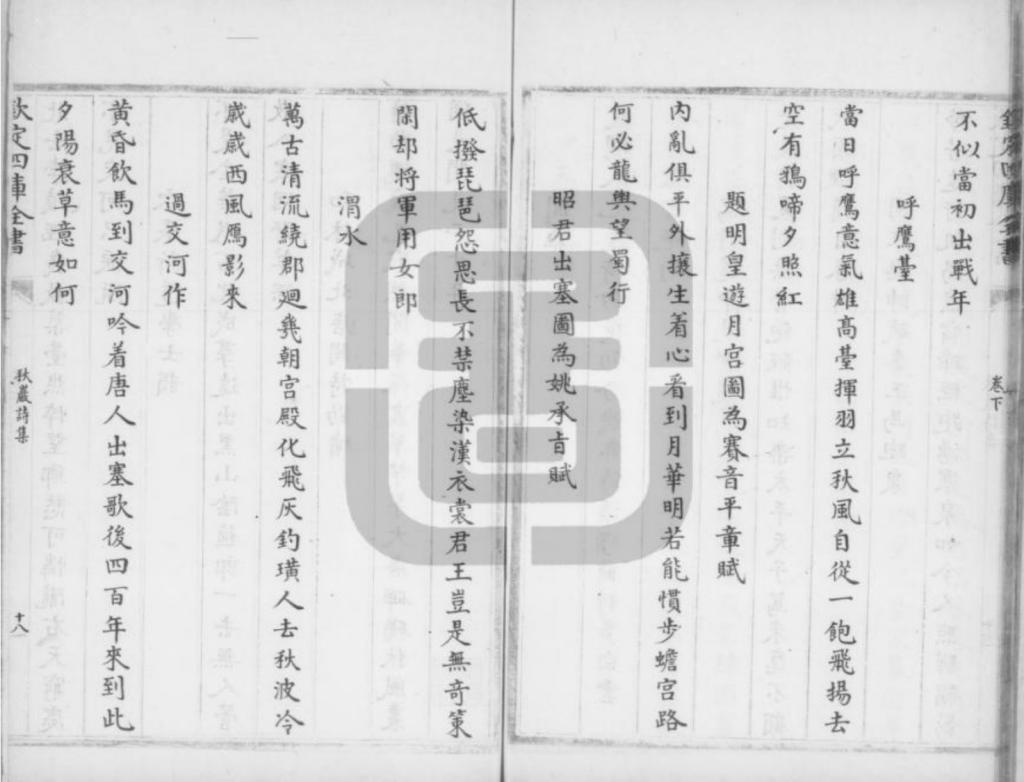 不似當初出戰年
呼鷹臺
當日呼鷹意氣雄高臺揮羽立秋風自從一飽飛揚去
空有鵶啼夕照紅
題明皇遊月宮圖為賽音平章賦
內亂俱平外攘生着心看到月華明若能慣步蟾宮路
何必龍輿望蜀行
昭君出塞圖為姚承㫖賦
低撥琵琶怨思長不禁塵染漢衣裳君王豈是無竒策
閑却將軍用女郎
渭水
萬古清流繞郡廻幾朝宮殿化飛灰釣璜人去秋波冷
歳歳西風鴈影來
過交河作
黃昏飲馬到交河吟着唐人出塞歌後四百年來到此
夕陽衰草意如何
欽定四庫全書
卷下
秋巖詩集
十八